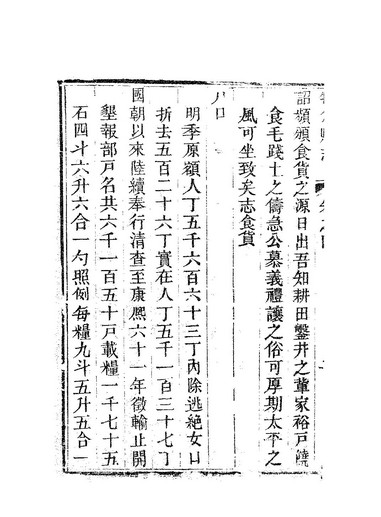 詔頻頒食貨之源日出吾知耕田鑿井之輩家裕戶饒
食毛踐土之儔急公慕義禮讓之俗可厚期太平之
風可坐致矣志食貨
戶口
明季原額人丁五千六百六十三丁內除逃絕女口
折去五百二十六丁實在人丁五千一百三十七丁
國朝以來陸續奉行清查至康熙六十一年徵輸止開
墾報部戶名共六千一百五十戶載糧一千七十五
石四斗六升六合一勺照例每糧九斗五升五合一